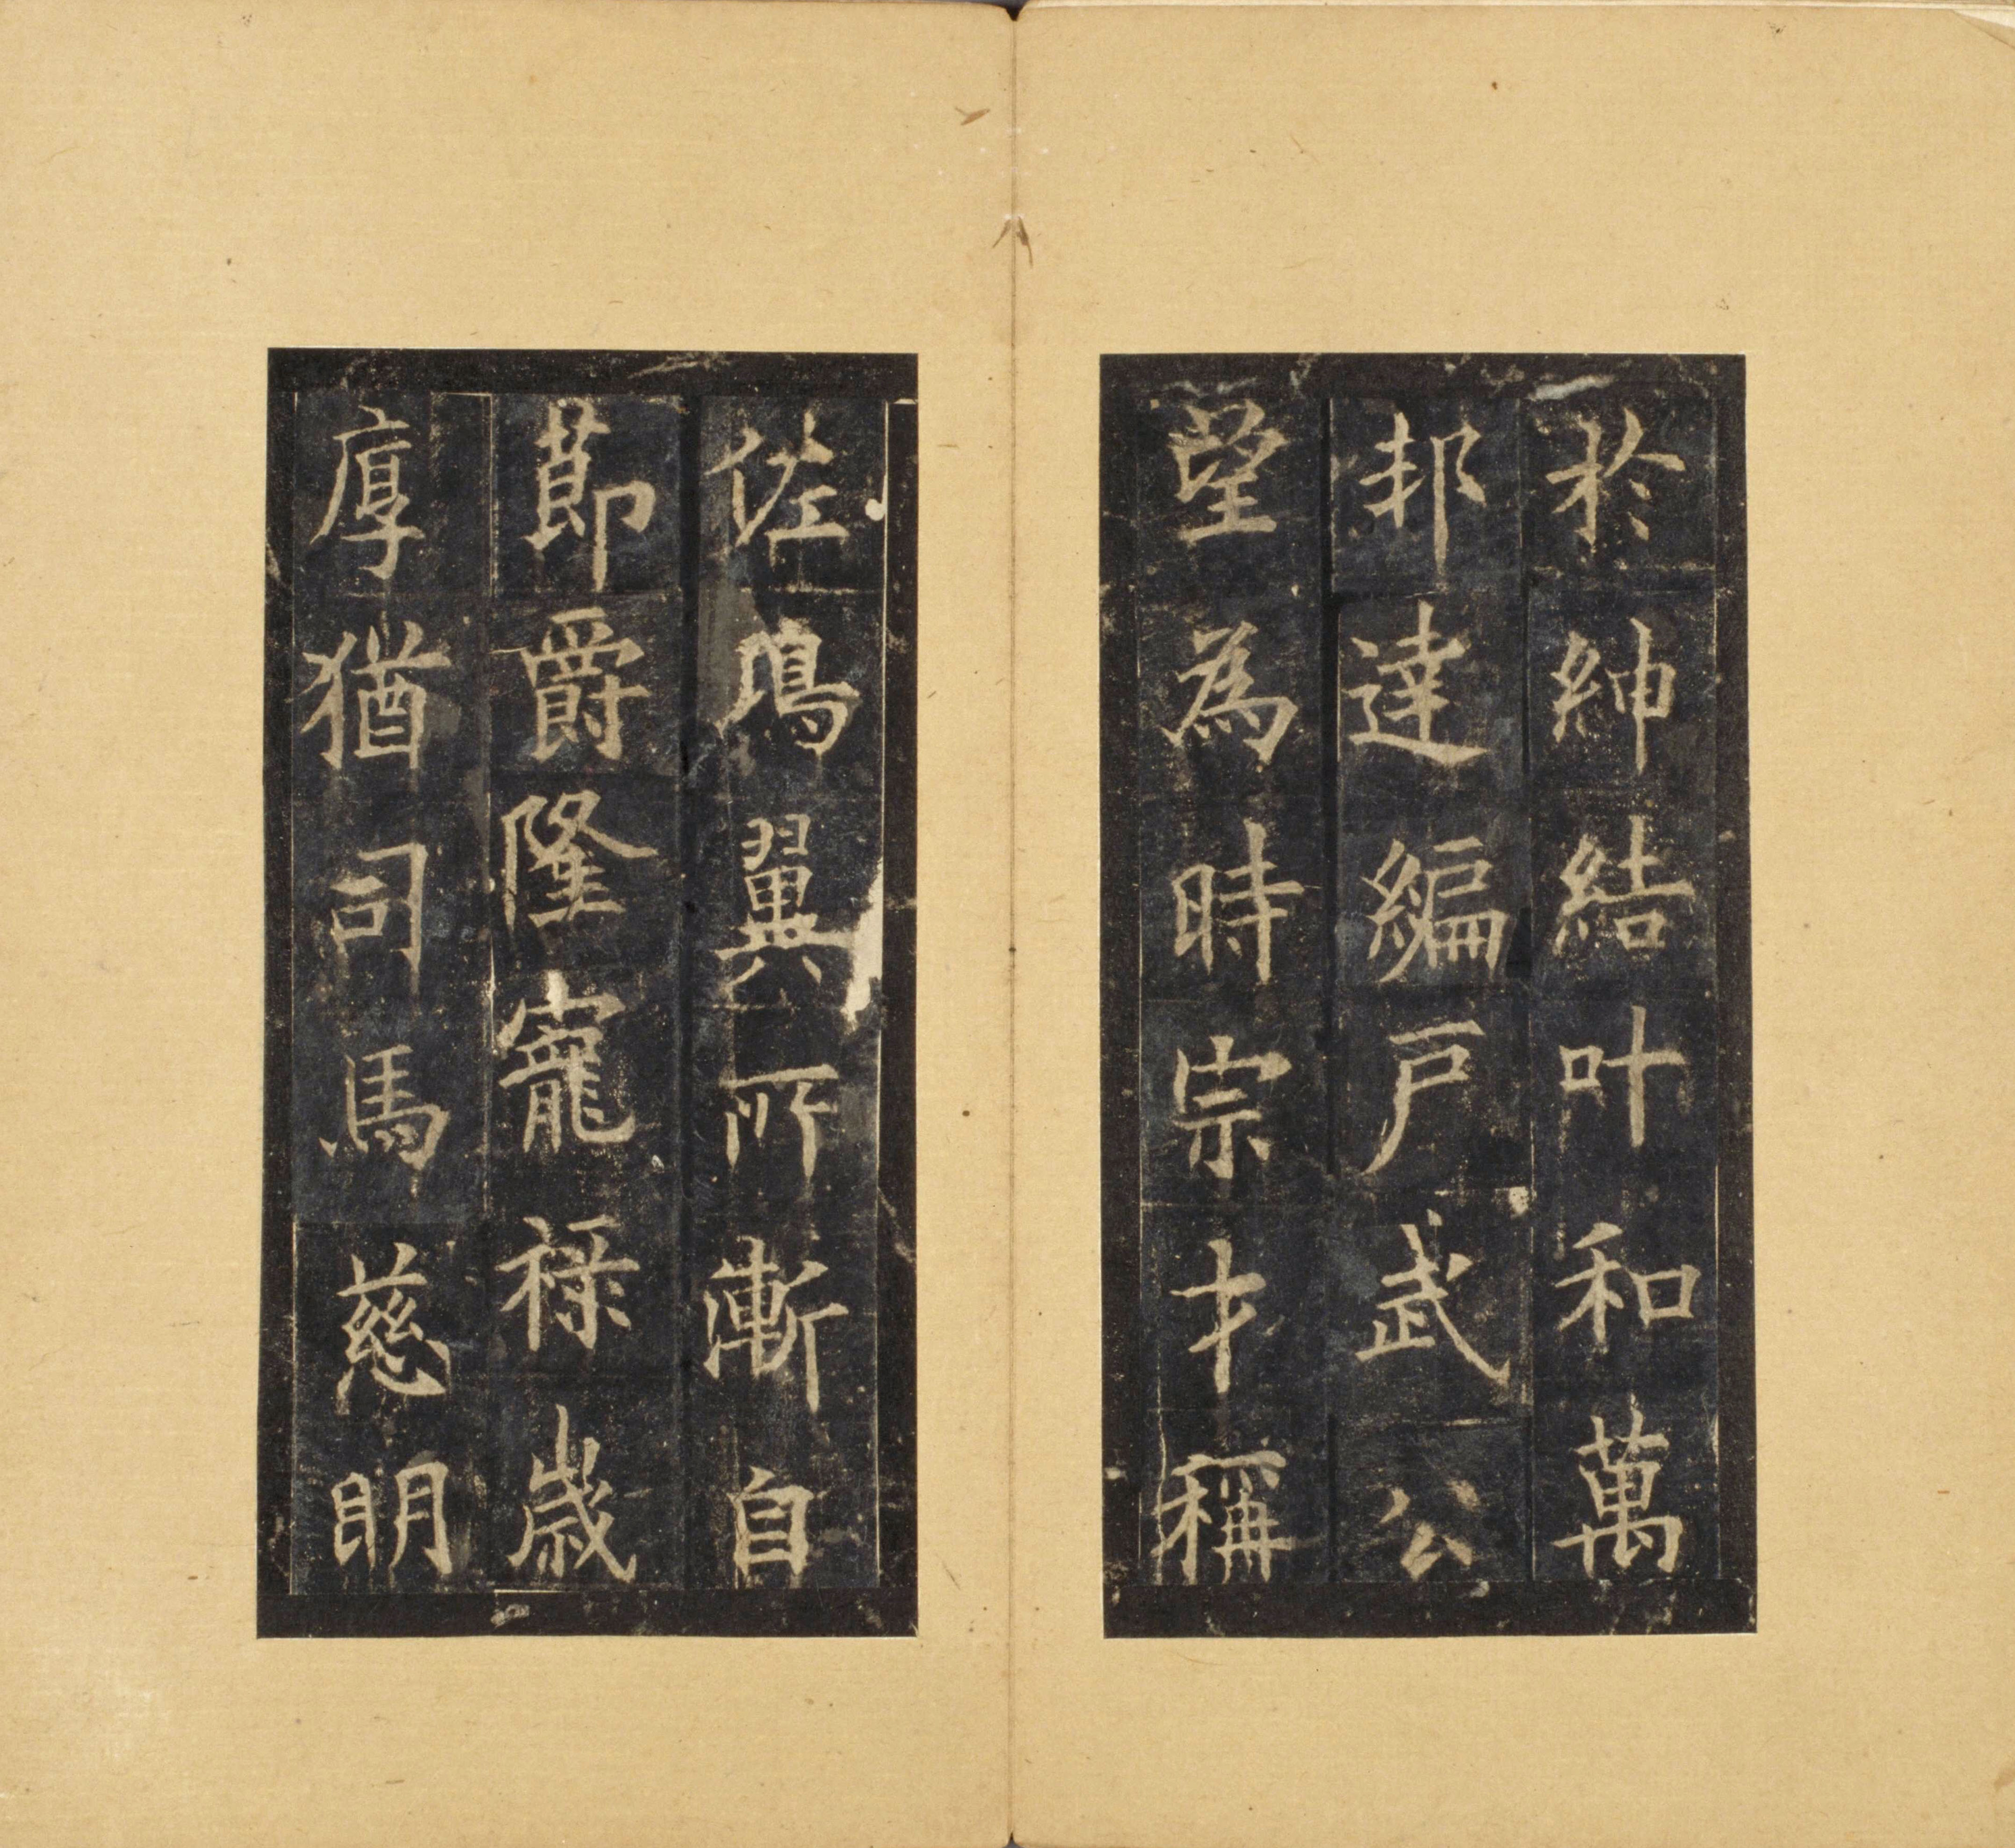 於紳結叶和萬
邦達編戸武公
望為時宗才稱
佐鴻翼所漸自
莭爵隆寵禄歳
厚猶司馬慈明